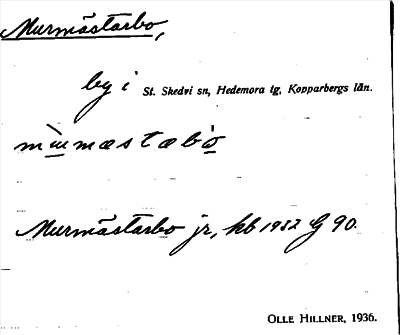 Murmästarbo,
by i St. Skedvi sn, Hedemora tg, Kopparbergs län.
Murmästarbo jr, kb 1932 G 90.
OLLE HILLNER, 1936.